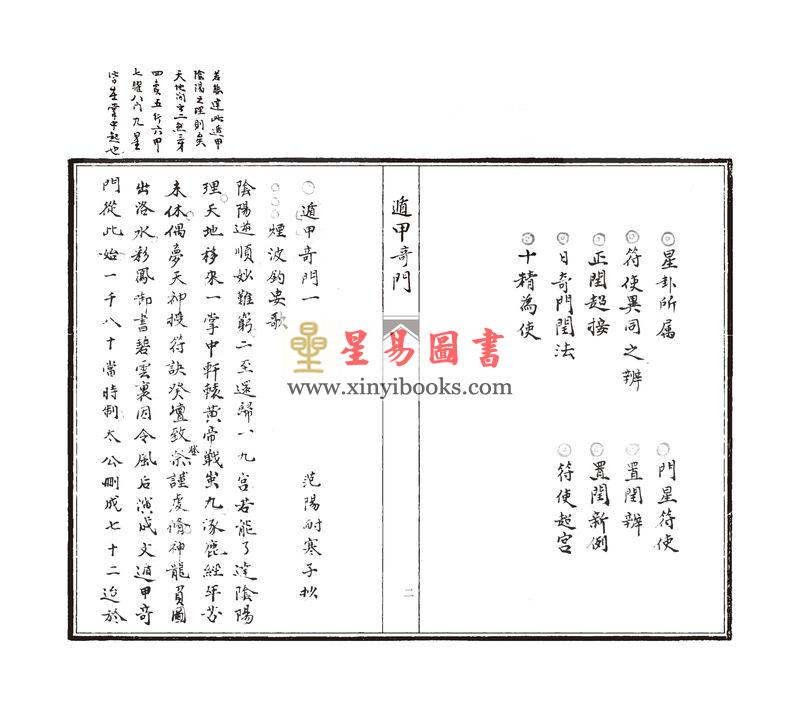 ◎星卦所属
◎門星符使
◎符使異同之辨
◎置閏辨
◎正閏超接
◎置閏新例
◎日奇門閏法
◎符使超宫
◎十精為使
遁甲奇門
二
○遁甲奇門一
范陽耐寒子抄
○○○煙波釣叟歌
陰陽逆順妙難窮二至還歸一九宮若能了達陰陽
理天地移來一掌中軒轅黄帝戰蚩九涿鹿經年苦
未休偶夢天神授符訣癸壇致祭謹虔脩神龍負圖
登
出洛水彩鳳啣書碧雲裏因令風后演成文遁甲奇
門從此始一千八十當時制太公刪成七十二迨於
若能達此遁甲
陰陽之理則矣
天地间
四 五行六甲
七曜八門九星
皆在掌中起也
星易圖書
www.xinyibooks.com